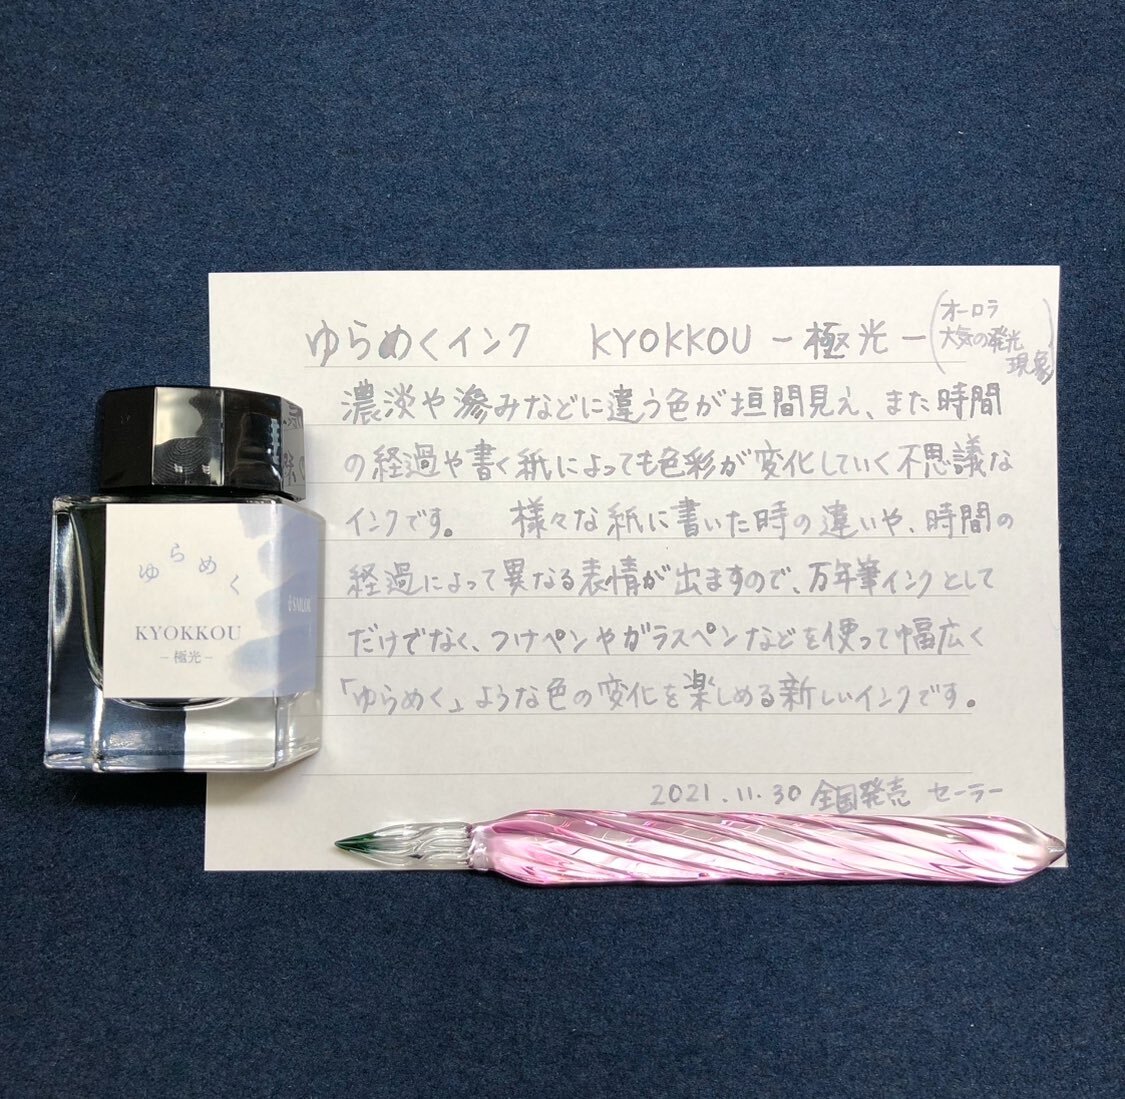 ゆらめくインク KYOKKOU －極光－
(オーロラ
大気の発光
現象)
濃淡や滲みなどに違う色が垣間見え、また時間
の経過や書く紙によっても色彩が変化していく不思議な
インクです。 様々な紙に書いた時の違いや、時間の
経過によって異なる表情が出ますので、万年筆インクとして
だけでなく、つけペンやガラスペンなどを使って幅広く
「ゆらめく」ような色の変化を楽しめる新しいインクです。
2021.11.30 全国発売 セーラー
ゆらめく
KYOKKOU
－極光－
SAILOR